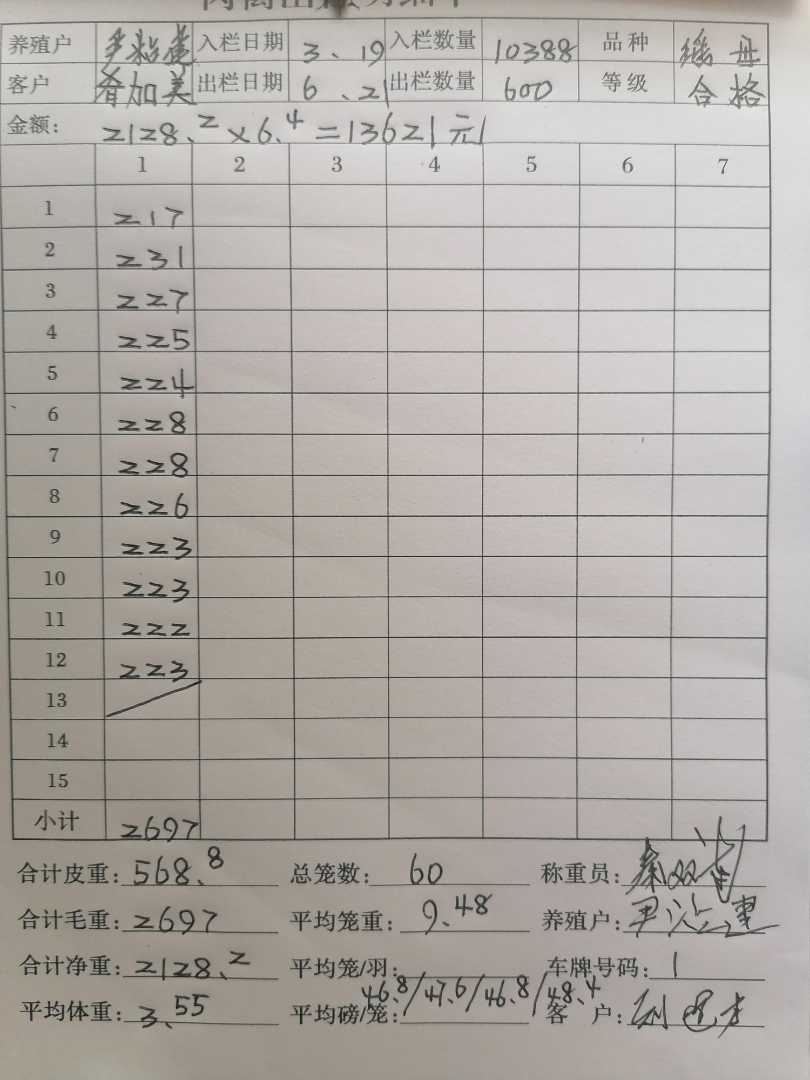 养殖户 入栏日期 3、19 入栏数量 10388 品种
客户 肴加美 出栏日期 6、21 出栏数量 600 等级 合格
金额: 2128.2×6.4=13621元
1 2 3 4 5 6 7
1 217
2 231
3 227
4 225
5 224
6 228
7 228
8 226
9 223
10 223
11 222
12 223
13
14
15
小计 2697
合计皮重: 568.8 总笼数: 60 称重员:
合计毛重: 2697 平均笼重: 9.48 养殖户:
合计净重: 2128.2 平均笼/羽: 车牌号码: 1
平均体重: 3.55 平均磅/笼: 46.8/47.6/46.8/48.4 客户: